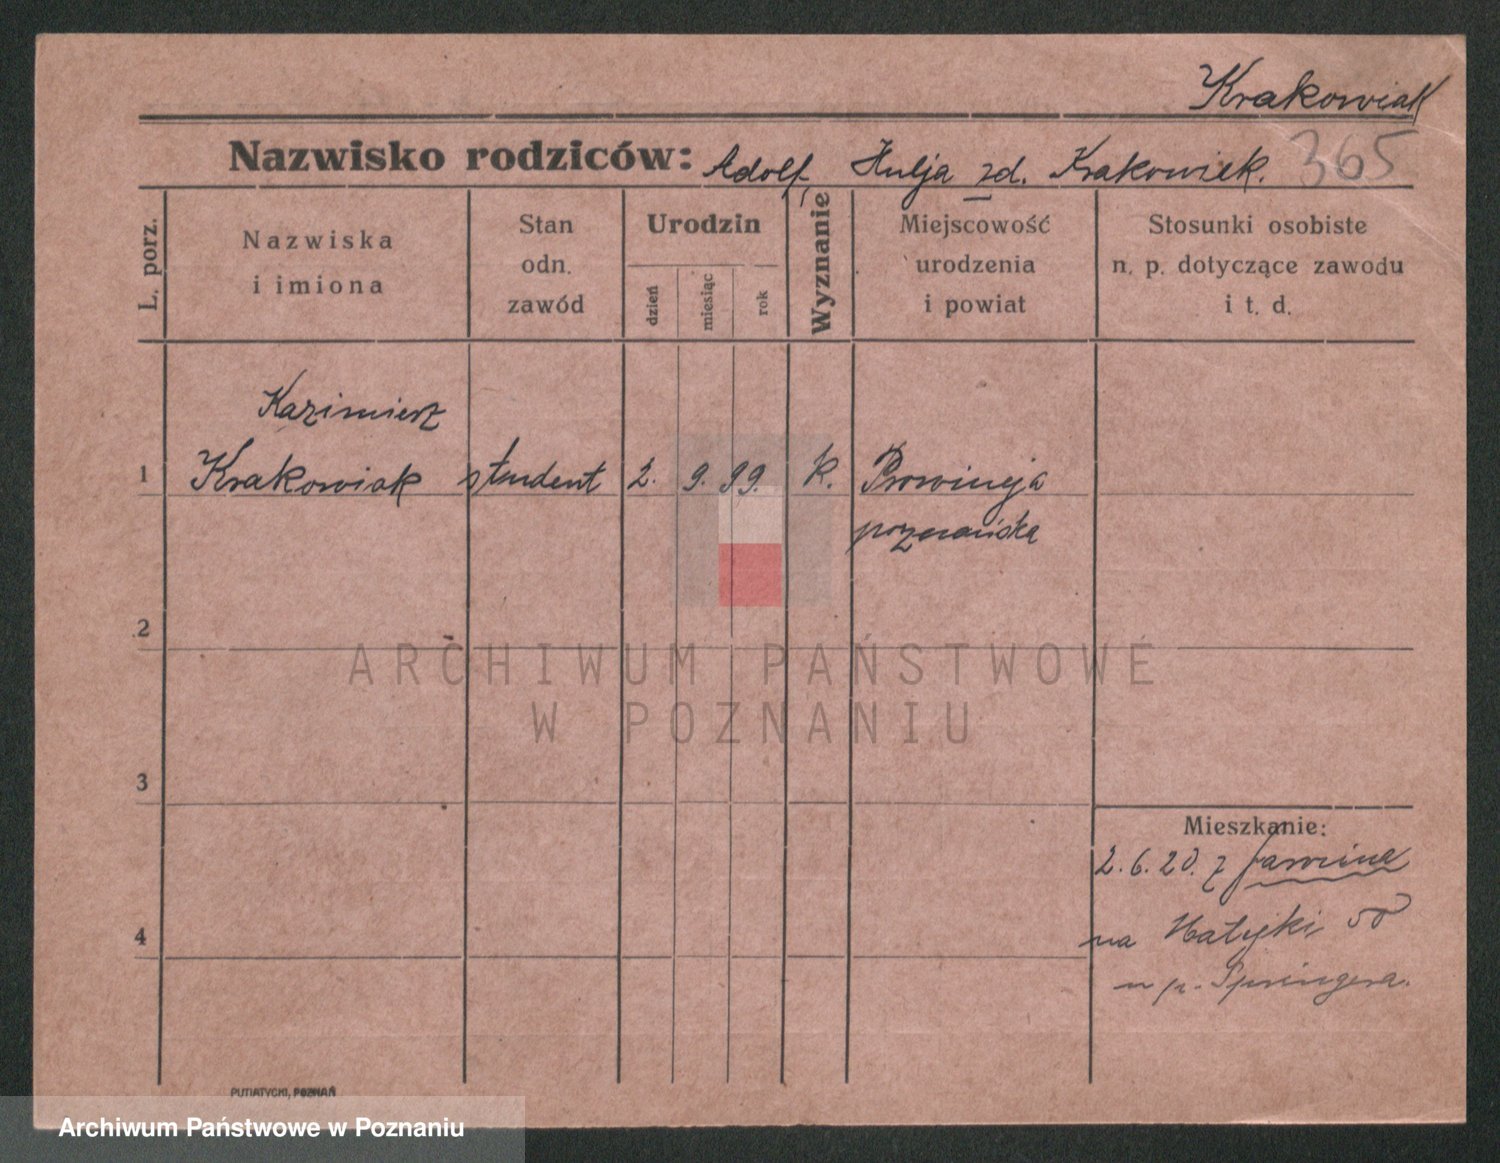 Krakowiak
365
Nazwisko rodziców: Adolf, Hulja zd. Krakowiak.
L. porz.
Nazwiska
i imiona
Stan
odn.
zawód
Urodzin
dzień
miesiąc
rok
Wyznanie
Miejscowość
urodzenia
i powiat
Stosunki osobiste
n. p. dotyczące zawodu
i t. d.
Kazimierz
1 Krakowiak student 2. 9. 99. k. Prowincja
poznańska
2
ARCHIWUM PAŃSTWOWE
W POZNANIU
3
Mieszkanie:
2.6.20. z
4
na Matejki 50
u p. Springera.
PUTIATYCKI, POZNAŃ
Archiwum Państwowe w Poznaniu